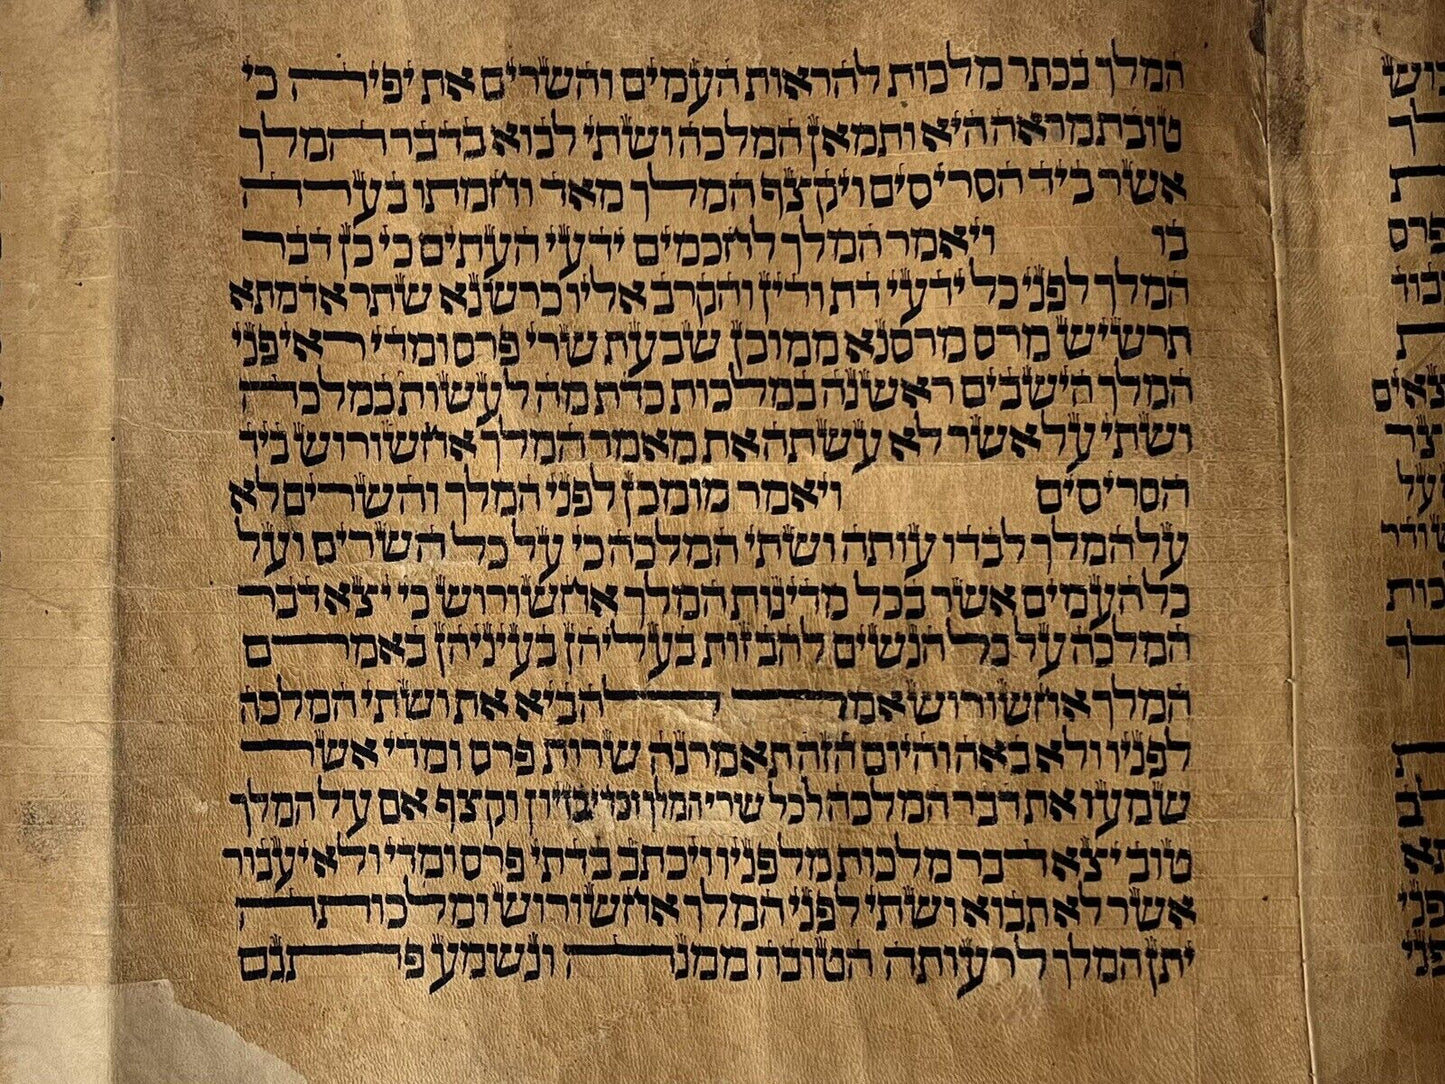 המלך בכתר מלכות להראות העמים והשרים את יפיה כי
טובת מראה היא ותמאן המלכה ושתי לבוא בדבר המלך
אשר ביד הסריסים ויקצף המלך מאד וחמתו בערה
בו ויאמר המלך לחכמים ידעי העתים כי כן דבר
המלך לפני כל ידעי דת ודין והקרב אליו כרשנא שתר אדמתא
תרשיש מרס מרסנא ממוכן שבעת שרי פרס ומדי ראי פני
המלך הישבים ראשנה במלכות כדת מה לעשות במלכה
ושתי על אשר לא עשתה את מאמר המלך אחשורוש ביד
הסריסים ויאמר מומכן לפני המלך והשרים לא
על המלך לבדו עותה ושתי המלכה כי על כל השרים ועל
כל העמים אשר בכל מדינות המלך אחשורוש כי יצא דבר
המלכה על כל הנשים להבזות בעליהן בעיניהן באמרם
המלך אחשורוש אמר להביא את ושתי המלכה
לפניו ולא באה והיום הזה תאמרנה שרות פרס ומדי אשר
שמעו את דבר המלכה לכל שרי המלך וכדי בזיון וקצף אם על המלך
טוב יצא דבר מלכות מלפניו ויכתב בדתי פרס ומדי ולא יעבור
אשר לא תבוא ושתי לפני המלך אחשורוש ומלכותה
יתן המלך לרעותה הטובה ממנה ונשמע פתגם